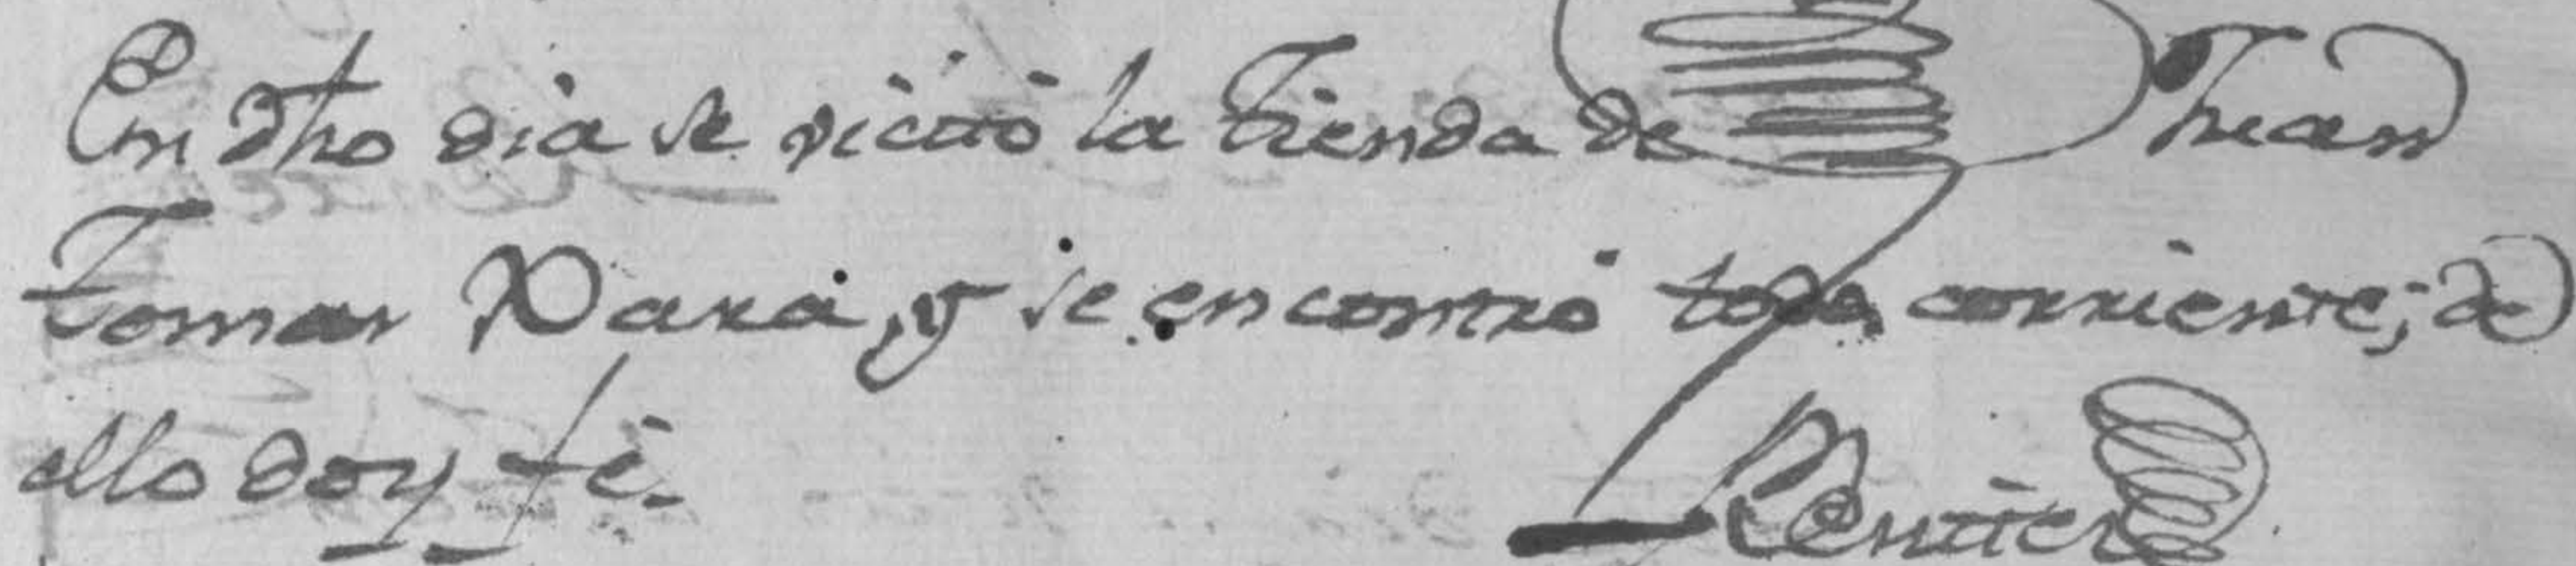 En dho dia se vicitó la Tienda de Juan
Tomas Xara, y se encontró todo corriente; de
ello doy fé.